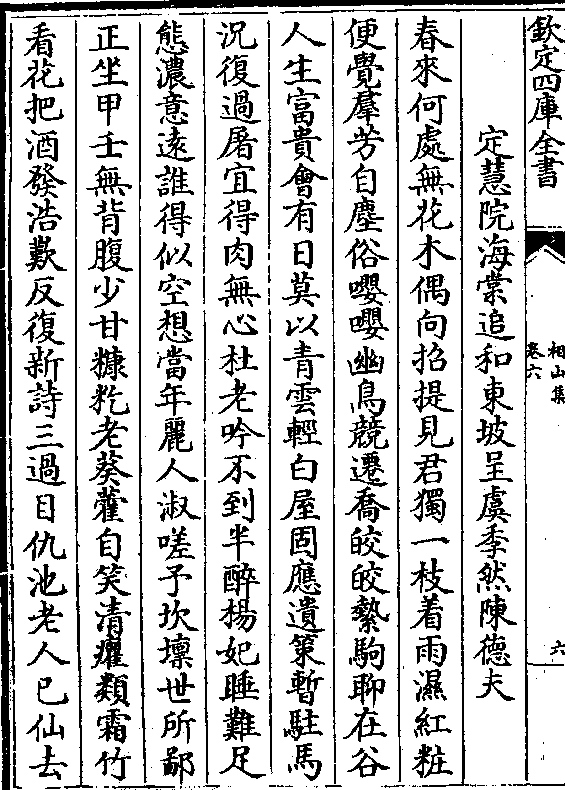 欽定四庫全書
相山集
卷六
六
定慧院海棠追和東坡呈虞季然陳德夫
春來何處無花木偶向招提見君獨一枝着雨濕紅粧
便覺羣芳自塵俗嚶嚶幽鳥競遷喬皎皎縶駒聊在谷
人生富貴會有日莫以青雲輕白屋固應遺策暫駐馬
況復過屠宜得肉無心杜老吟不到半醉楊妃睡難足
態濃意逺誰得似空想當年麗人淑嗟予坎壈世所鄙
正坐甲壬無背腹少甘糠籺老葵藿自笑清癯類霜竹
看花把酒發浩歎反復新詩三過目仇池老人已仙去